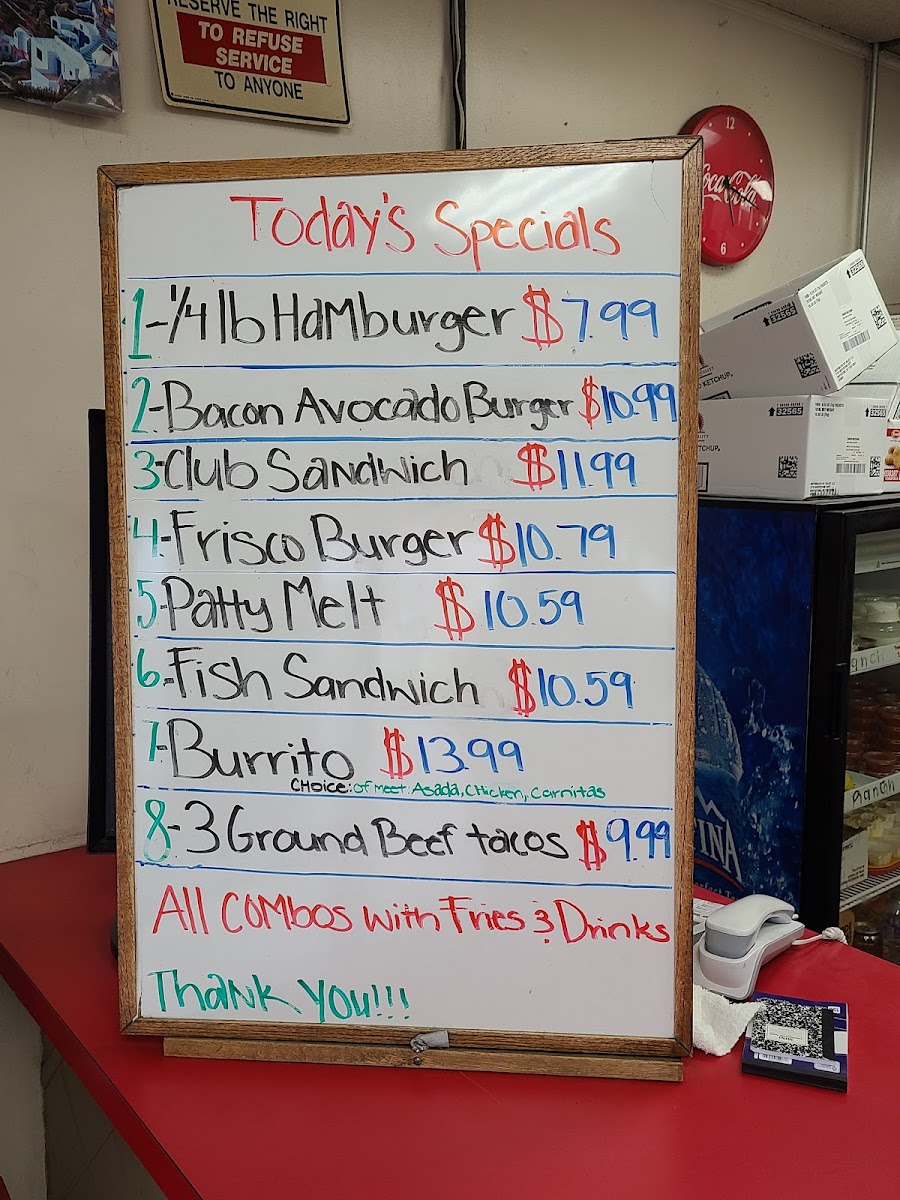 RESERVE THE RIGHT
TO REFUSE
SERVICE
TO ANYONE
12
Coca-Cola
6
Today's Specials
1-1/4 lb Hamburger $7.99
2-Bacon Avocado Burger $10.99
3-Club Sandwich $11.99
4-Frisco Burger $10.79
5-Patty Melt $10.59
6-Fish Sandwich $10.59
7-Burrito $13.99
CHoice: of meet: Asada, CHicken, Carnitas
8-3 Ground Beef tacos $9.99
All COMbos with Fries & Drinks
Thank You!!!
32565
KETCHUP
32565
KETCHUP
32565
INA
anch
Ranch